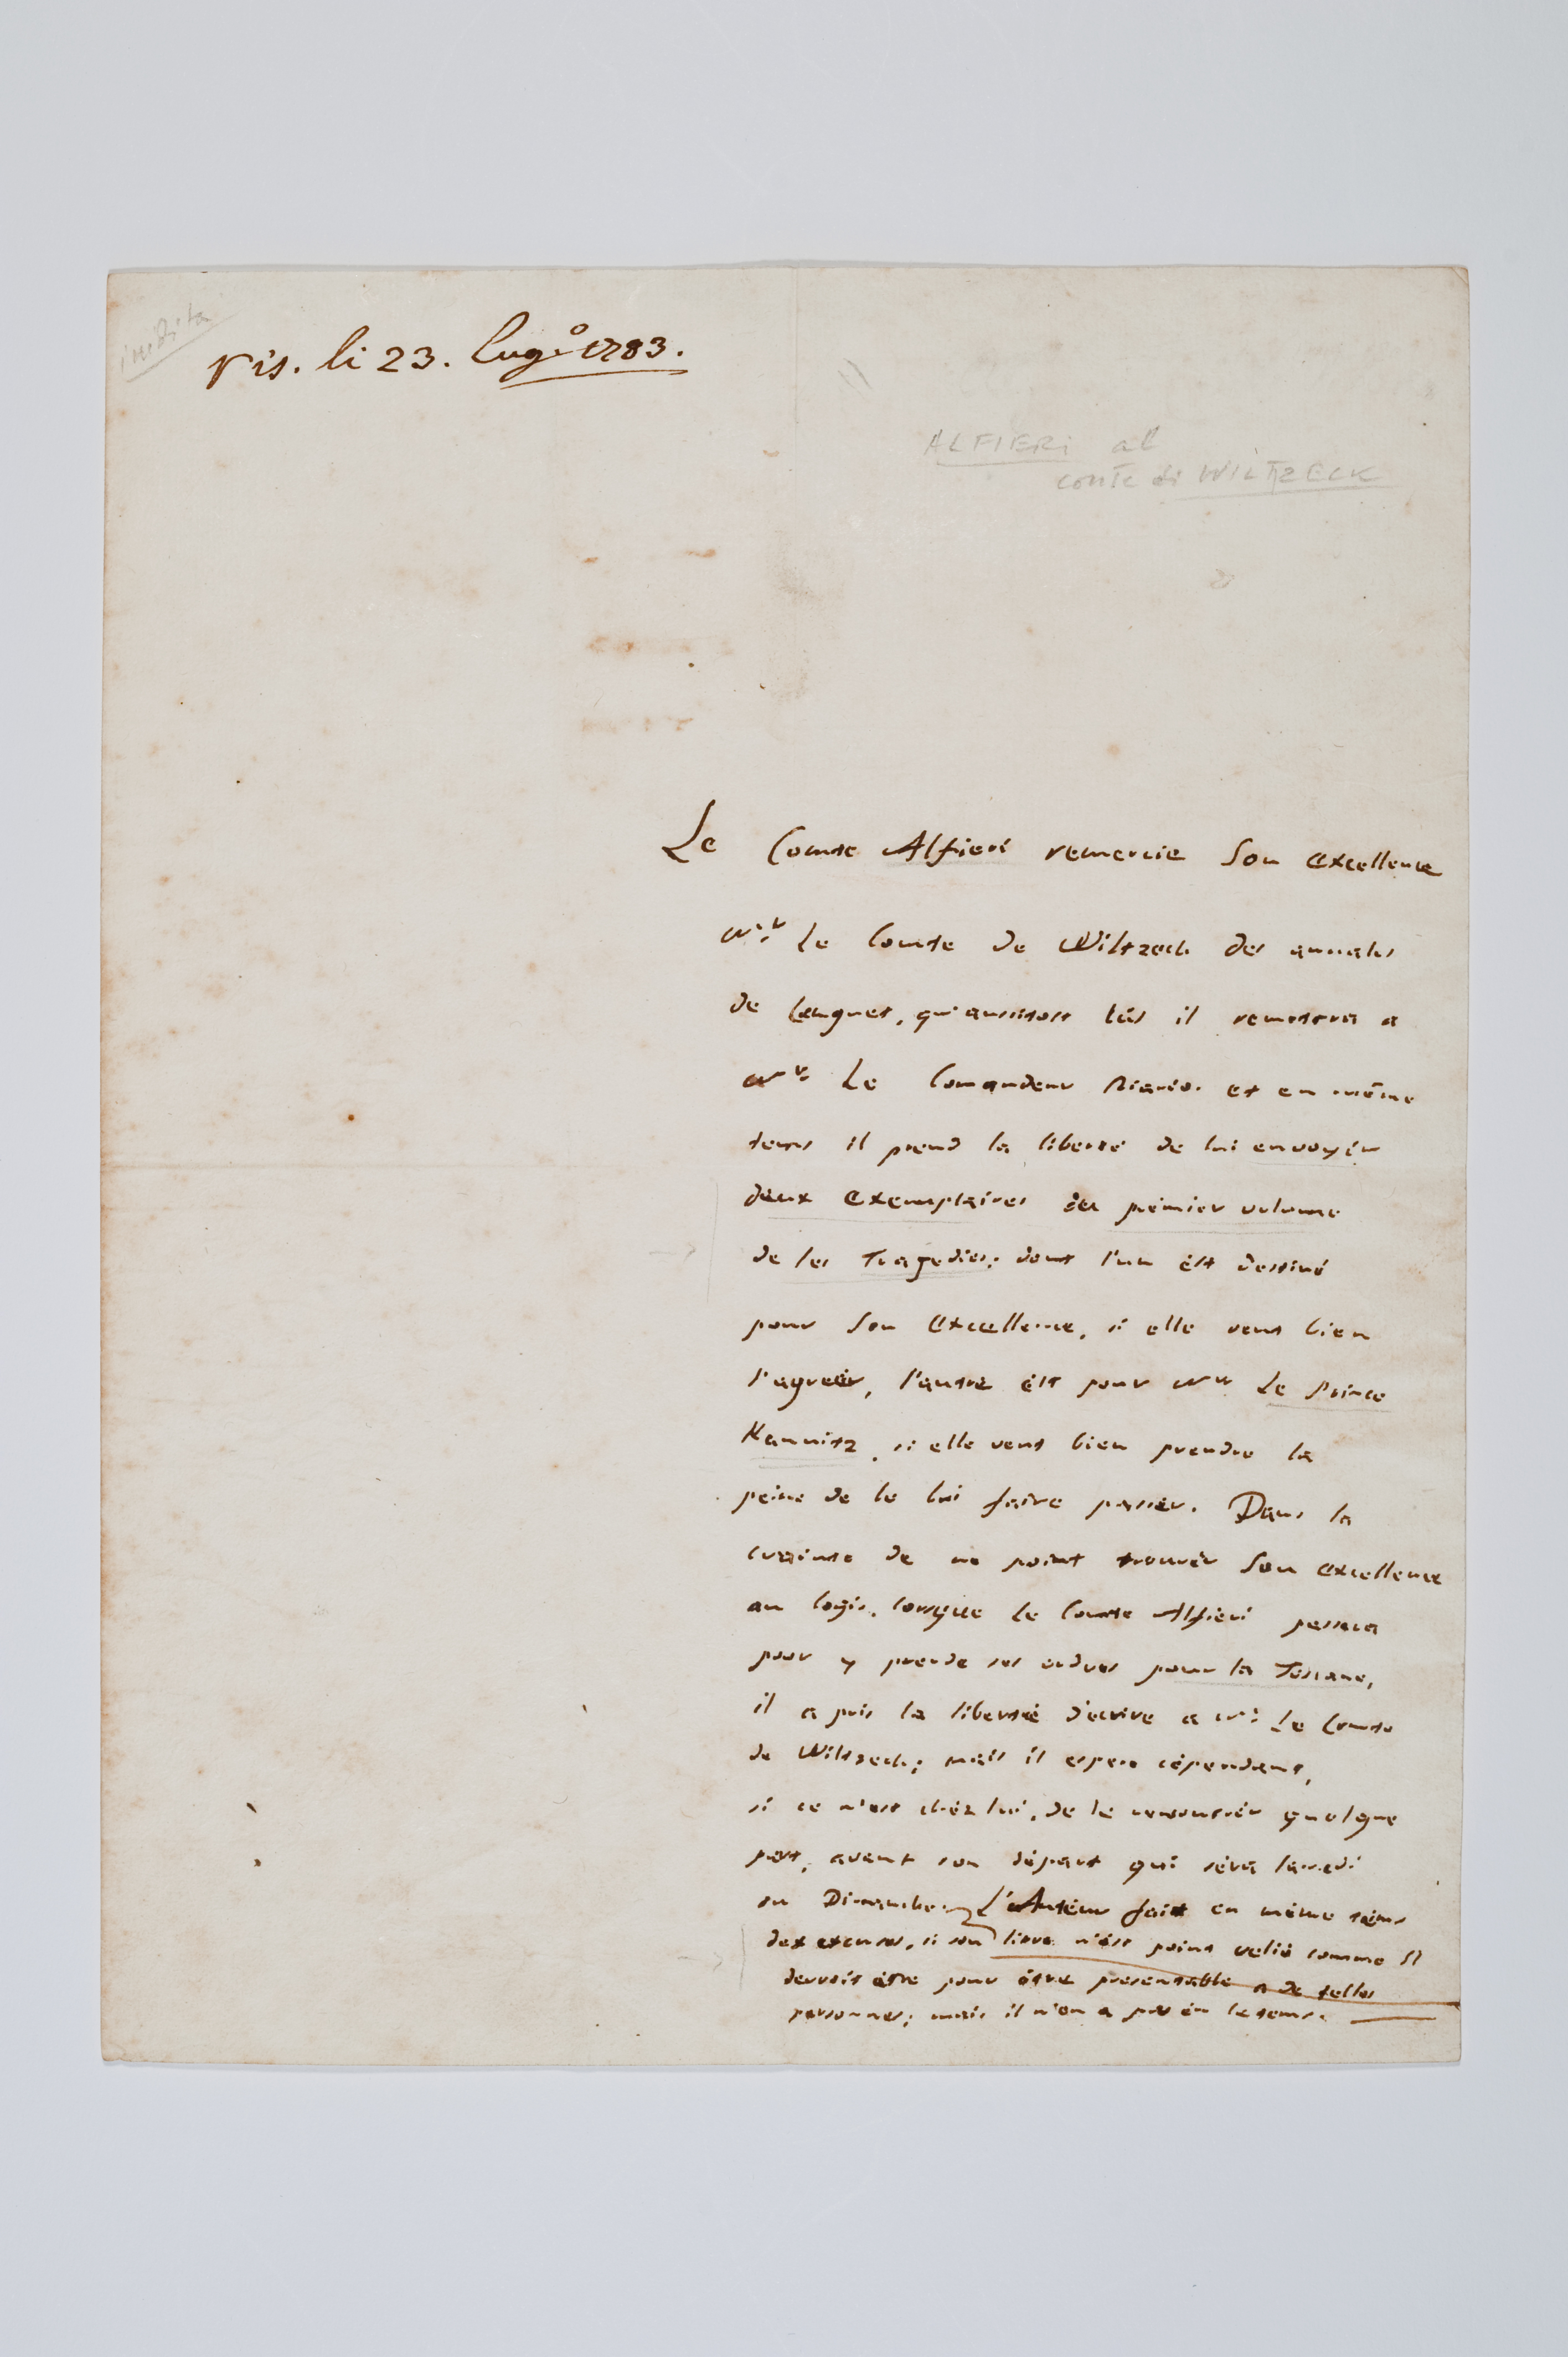 inedita
ris. li 23. Lugº 1783.
ALFIERI al
conte di WILTZECK
Le Comte Alfieri remercie Son Excellence
Mr. le Comte de Wiltzech des annales
de Linguet, qu'aussitost lûs il remettra a
Mr. Le Comandeur Riario. et en même
tems il prend la liberté de lui envoyér
deux Exemplaires du premier volume
de ses Tragedies; dont l'un ést destiné
pour Son Excellence, si elle veut bien
l'agréér, l'autre ést pour Mr. Le Prince
Kaunitz, si elle veut bien prendre la
peine de le lui faire passér. Dans la
crainte de ne point trouvér Son Excellence
au logis, lorsque le Comte Alfieri passera
pour y prende ses ordres pour la Toscane,
il a pris la liberté d'écrire a Mr. Le Comte
de Wiltzech; mais il espere cépendant,
si ce n'est chéz lui, de le rencontrér quelque
part, avant son départ qui séra Samedi
ou Dimanche. L'Autéur fait en même téms
des excuses, si son livre n'ést point relié comme il
devroit étre pour étre presentable a de telles
personnes; mais il n'en a pas éu le tems.